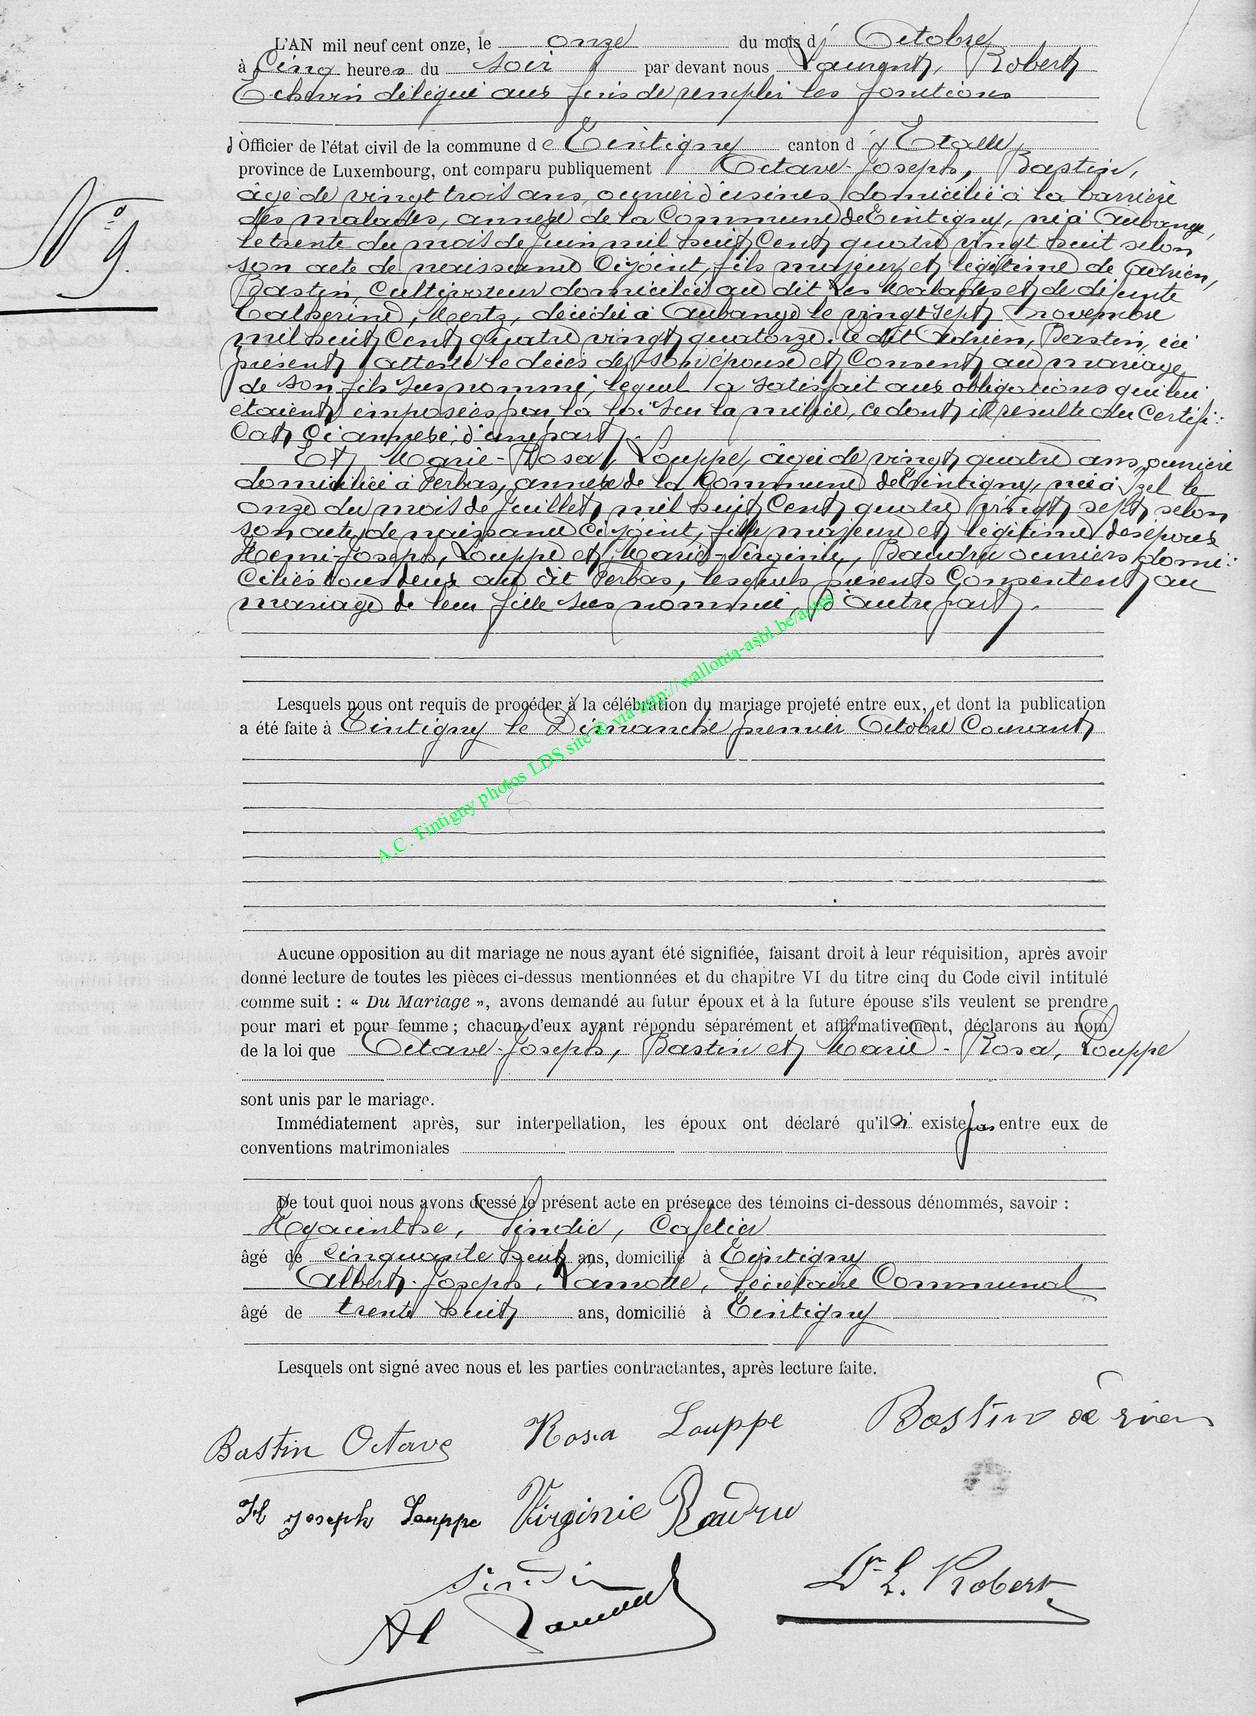 L'AN mil neuf cent onze, le onze du mois d' Octobre
à cinq heures du soir par devant nous Laurent, Robert
Echevin délégué aux fins de remplir les fonctions
d'Officier de l'état civil de la commune de Tintigny canton d' Etalle,
province de Luxembourg, ont comparu publiquement Octave-Joseph, Bastin,
âgé de vingt trois ans, ouvrier d'usines, domicilié à la barrière
des malades, annexe de la Commune de Tintigny, né à Aubange,
le trente du mois de Juin mil huit Cent quatre vingt huit selon
son acte de naissance Ci-joint, fils majeur et légitime de Adrien,
Bastin, Cultivateur domicilié au dit Les Malades et de défunte
Catherine, Mertz, décédée à Aubange le vingt sept novembre
mil huit Cent quatre vingt quatorze. Le dit Adrien, Bastin, ici
présent atteste le décès de son épouse et Consent au mariage
de son fils sus nommé, lequel a satisfait aux obligations qui lui
étaient imposées par la loi sur la milice, ce dont il résulte du certifi-
cat Ci annexé, d'une part.
Et Marie-Rosa, Louppe, âgée de vingt quatre ans, ouvrière
domiciliée à Perbas, annexe de la Commune de Tintigny, née à Izel le
onze du mois de Juillet mil huit Cent quatre vingt sept selon
son acte de naissance Ci-joint, fille majeure et légitime des époux
Henri-Joseph, Louppe et Marie-Virginie, Baudru ouvriers domi-
ciliés tous deux au dit Perbas, lesquels présents Consentent au
mariage de leur fille sus nommée, d'autre part.
Lesquels nous ont requis de procéder à la célébration du mariage projeté entre eux, et dont la publication
a été faite à Tintigny le Dimanche premier Octobre Courant
A.C. Tintigny photos LDS site © via http://wallonia-asbl.be/actes
N° 9.
Aucune opposition au dit mariage ne nous ayant été signifiée, faisant droit à leur réquisition, après avoir
donné lecture de toutes les pièces ci-dessus mentionnées et du chapitre VI du titre cinq du Code civil intitulé
comme suit : « Du Mariage », avons demandé au futur époux et à la future épouse s'ils veulent se prendre
pour mari et pour femme ; chacun d'eux ayant répondu séparément et affirmativement, déclarons au nom
de la loi que Octave-Joseph, Bastin et Marie-Rosa, Louppe
sont unis par le mariage.
Immédiatement après, sur interpellation, les époux ont déclaré qu'il n'existe pas entre eux de
conventions matrimoniales
De tout quoi nous avons dressé le présent acte en présence des témoins ci-dessous dénommés, savoir :
Hyacinthe, Sindic, Cafetier
âgé de cinquante huit ans, domicilié à Tintigny
Albert-Joseph, Lamotte, Secrétaire Communal
âgé de trente huit ans, domicilié à Tintigny
Lesquels ont signé avec nous et les parties contractantes, après lecture faite.
Bastin Octave Rosa Louppe Bastin Adrien
H Joseph Louppe Virginie Baudru
Sindic
Dr L. Robert
Al Lamotte